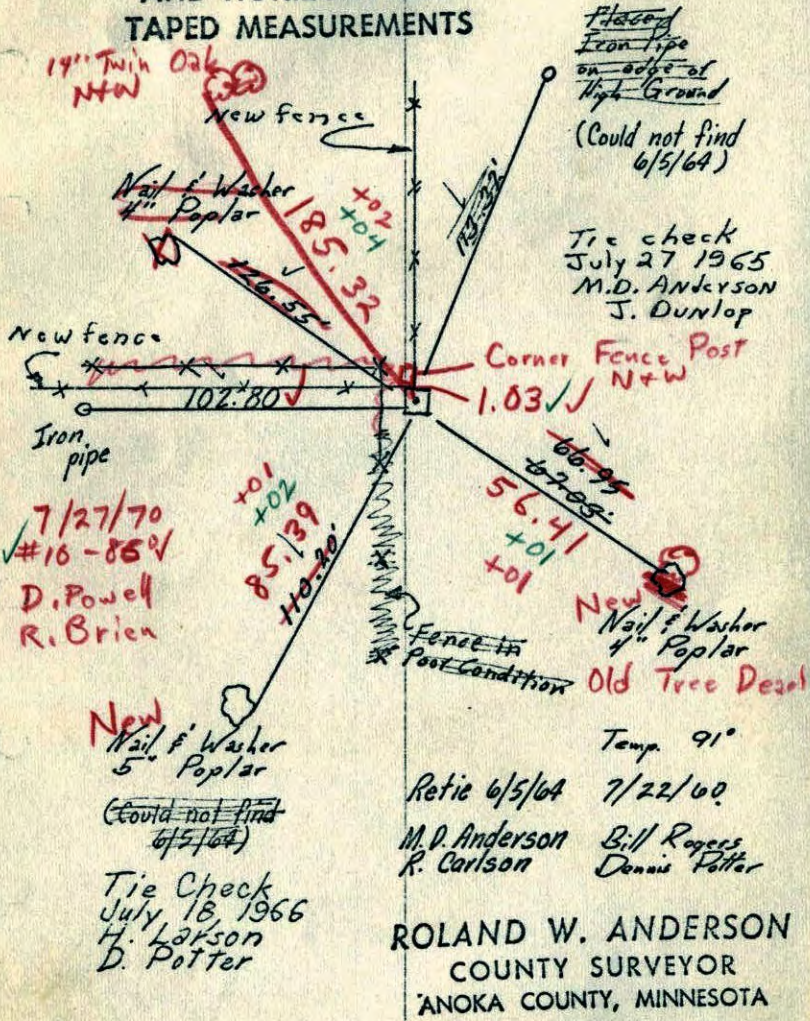 TAPED MEASUREMENTS
14" Twin Oak
N+W
New fence
Placed
Iron Pipe
on edge of
High Ground
(Could not find
6/5/64)
Nail & Washer
4" Poplar
+02
+04
185.32
126.55'
Tie check
July 27 1965
M.D. Anderson
J. Dunlop
New fence
102.80
Corner Fence Post
N+W
1.03
Iron
pipe
66.95
67.05'
56.41
+01
+01
7/27/70
#16-86°
D. Powell
R. Brien
+01
+02
85.39
110.20'
Fence in
Poor Condition
New
Nail & Washer
4" Poplar
Old Tree Dead
New
Nail & Washer
5" Poplar
(Could not find
6/5/64)
Temp. 91°
Retie 6/5/64 7/22/60
M.D. Anderson Bill Rogers
R. Carlson Dennis Potter
Tie Check
July 18, 1966
H. Larson
D. Potter
ROLAND W. ANDERSON
COUNTY SURVEYOR
ANOKA COUNTY, MINNESOTA